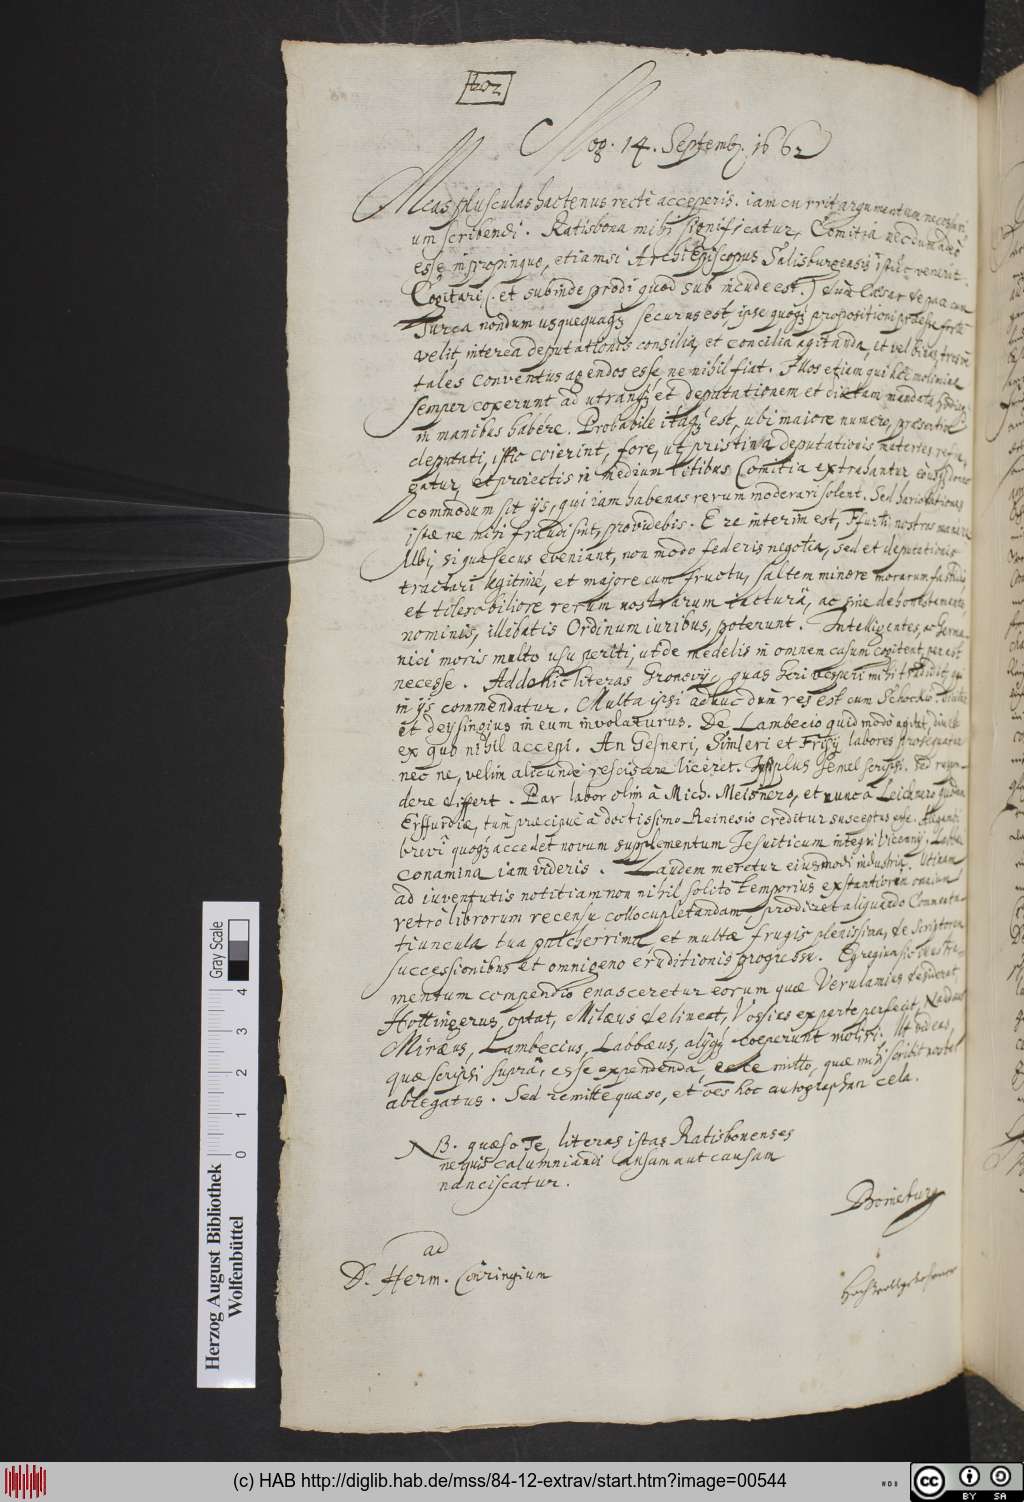 202
Mog. 14. Septemb. 1662
Meas plusculas hactenus recte acceperis. iam currit argumentum necessari-
um scribendi. Ratisbona mihi significatur, Comitia necdum adeo
esse in propinquo, etiamsi Archiepiscopus Salisburgensis istuc venerit.
Cogitari (et subinde prodi quod sub incude est.) dum Cæsar de pace cum
Turca nondum usquequaq; securus est, ipse quoq; propositioni præesse forte
velit, interea deputationis consilia, et concilia agitanda, et vel binos, tresve
tales conventus agendos esse, ne nihil fiat. Illos etiam qui hæc molimina
semper coxerunt ad utramq; et deputationem et dictam mandata
in manibus habere. Probabile itaq; est, ubi maiore numero, præsertim
deputati, istic coierint, fore, ut pristina deputationis materies
gatur, et proiectis in medium litibus Comitia extrahantur eousq; donec
commodum sit ijs, qui iam habenas rerum moderari solent. Sed hariolationes
istæ ne mihi fraudi sint, providebis. E re interim est, Ffurti nostros manere
Ubi, si quæ secus eveniant, non modo fœderis negotia, sed et deputationis
tractari legitime, et majore cum fructu, saltem minore morarum fastidio
et tolerabiliore rerum nostrarum iactura, ac sine dehonestamento
nominis, illibatis Ordinum iuribus, poterunt. Intelligentes, ac Germa-
nici moris multo usu periti, ut de medelis in omnem casum cogitent, par est
necesse. Addo hic literas Gronovij, quas heri vesperi mihi tradidit, qui
in ijs commendatur. Multa ipsi adhuc dum res est cum Schockio
et deflsingius in eum involaturus. De Lambecio quid modo agat, diu est
ex quo nihil accepi. An Gesneri, Simleri et Frisij labores prosequatur
nec ne, velim alicunde resciscere liceret. Ipsi plus semel scripsi. sed respon-
dere differt. Par labor olim à Mich. Meisnero, et nunc à Leichnero quodam
Erffurdiæ, tum præcipue à doctissimo Reinesio creditur susceptus esse. Alegambi
brevi quoq; accedet novum supplementum Jesuiticum integri vicennij. Labbei
conamina iam videris. Laudem meretur eiusmodi industria. Utinam
ad iuventutis notitiam non nihil solito temporius exstantiorum omnium
retro librorum recensu collocupletandam, prodiret aliquando Commenta-
tiuncula tua pulcherrima et multæ frugis plenissima, de Scriptorum
successionibus et omnigeno eruditionis progressu. Egregium sic instru-
mentum compendio enasceretur eorum quæ Verulamius desiderat,
Hottingerus optat, Milæus delineat, Vossius ex parte perfecit, Naudæus
Miræus, Lambecius, Labbæus, alijq; coeperunt moliri. Ut videas,
quæ scripsi supra, esse expendenda, ecce mitto, quæ mihi scribit noster
ablegatus. Sed remitte quæso, et oes hoc autographum cela.
NB. quæso Te, literas istas Ratisbonenses
ne quis calumniandi ansam aut causam
nanciscatur.
Boineburg
ad
D. Herm. Conringium
Hochwollgebohrner
Herzog August Bibliothek
Wolfenbüttel
0 1 2 3 4
Gray Scale
(c) HAB http://diglib.hab.de/mss/84-12-extrav/start.htm?image=00544
cc BY SA